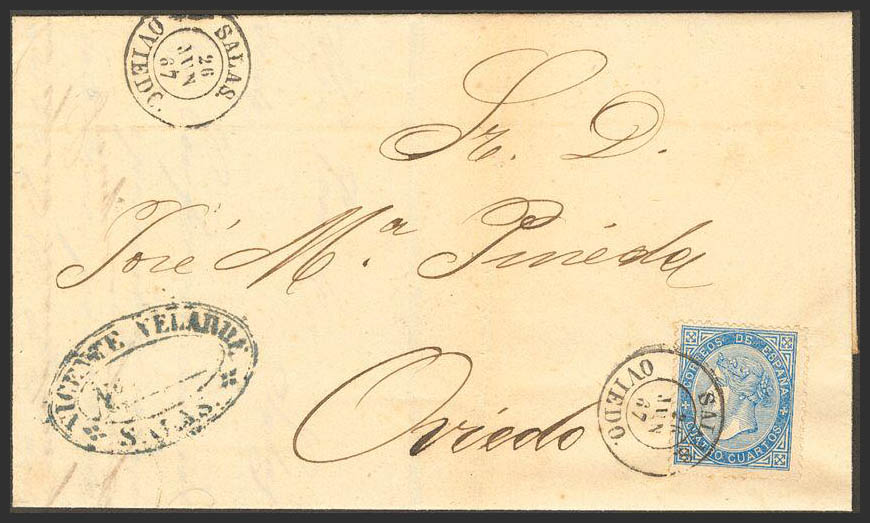 SALAS.
26
JUN
67
OVIEDO.
Sr. D.
José M.ª Pineda
Oviedo
VICENTE VELARDE
SALAS.
SAL
JUN
67
OVIEDO
CORREOS DE ESPAÑA
CUATRO CUARTOS